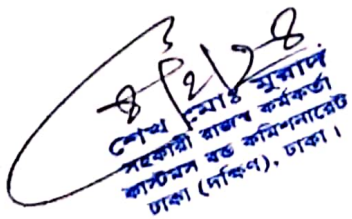 ৪/২/২৪
শেখ মোঃ মুরাদ
সহকারী রাজস্ব কর্মকর্তা
কাস্টমস বন্ড কমিশনারেট
ঢাকা (দক্ষিণ), ঢাকা।